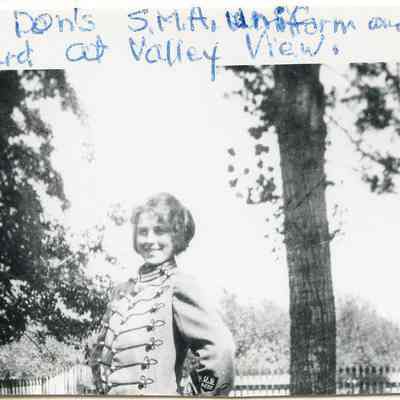 Don's S.M.A. uniform and
at Valley View.